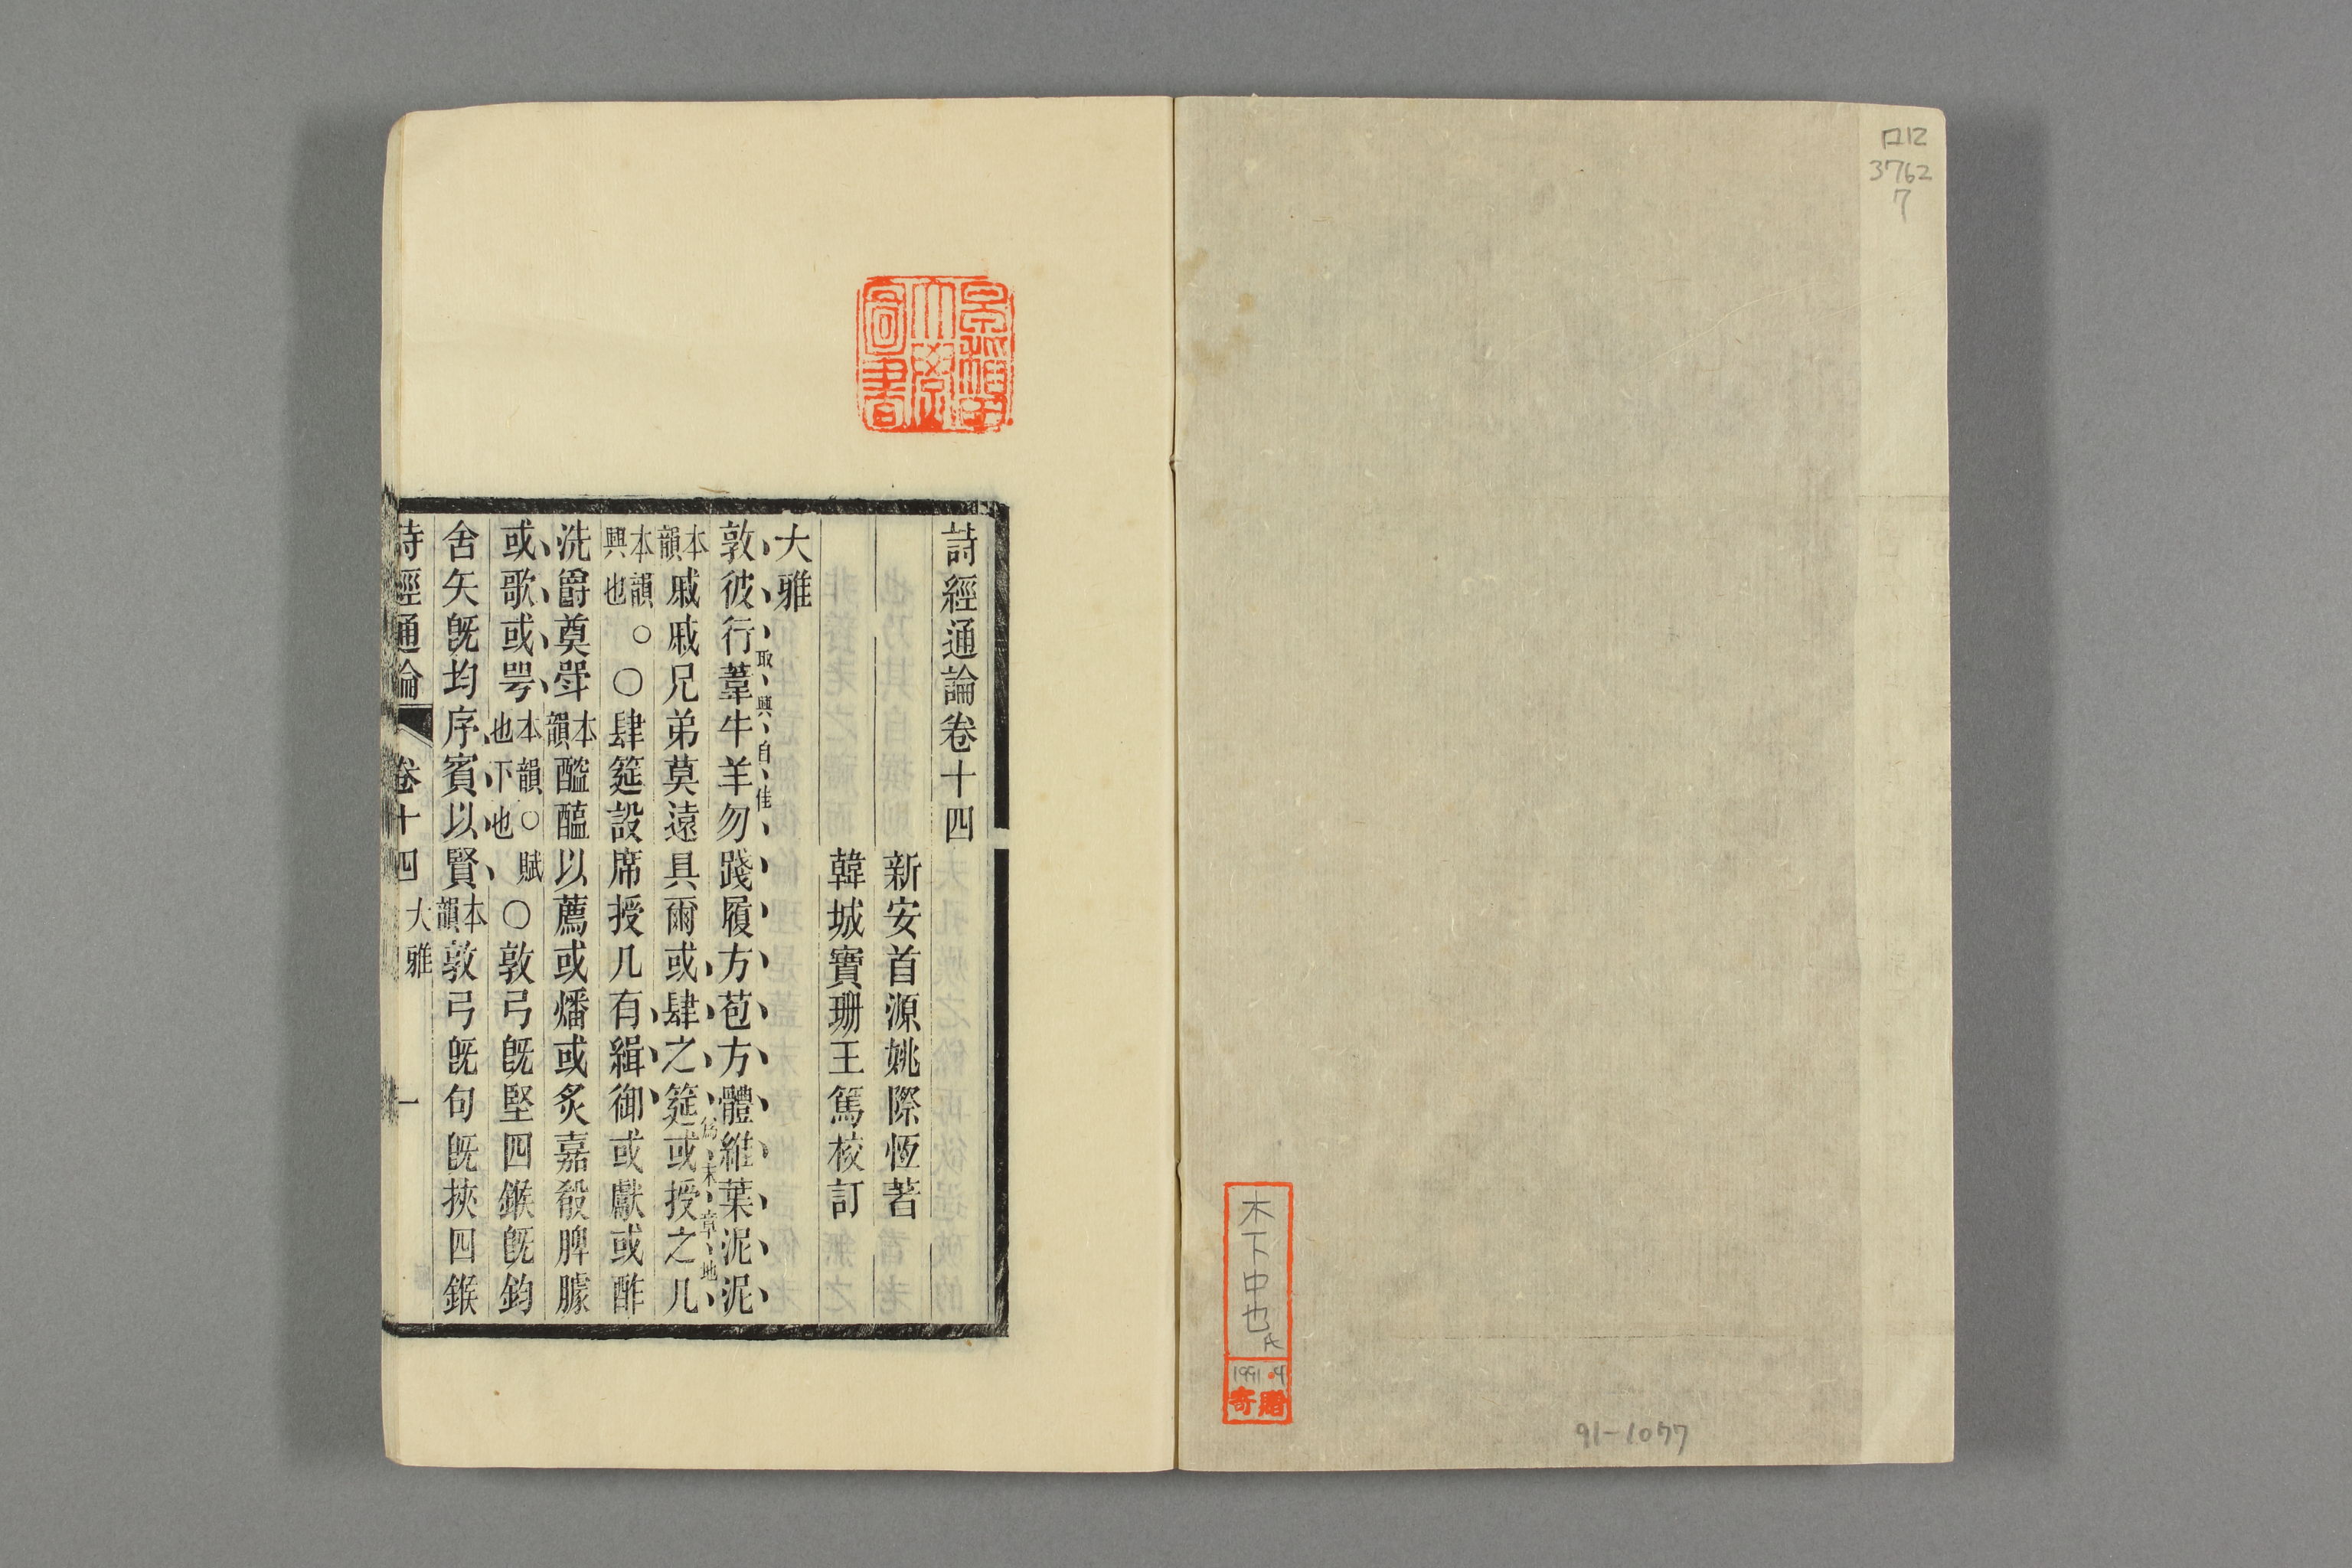 ロ12
3762
7
91-1077
木下中也氏
1991.4
寄贈
早稻田
大學
圖書
詩經通論卷十四
新安首源姚際恆著
韓城寶珊王篤校訂
大雅
取興自佳
敦彼行葦牛羊勿踐履方苞方體維葉泥泥
為末章地
本韻戚戚兄弟莫遠具爾或肆之筵或授之几
本韻○興也〇肆筵設席授几有緝御或獻或酢
洗爵奠斝本韻醓醢以薦或燔或炙嘉殽脾臄
或歌或咢本韻○賦也下也〇敦弓旣堅四鍭旣鈞
舍矢旣均序賓以賢本韻敦弓旣句旣挾四鍭
詩經通論 卷十四 大雅 一